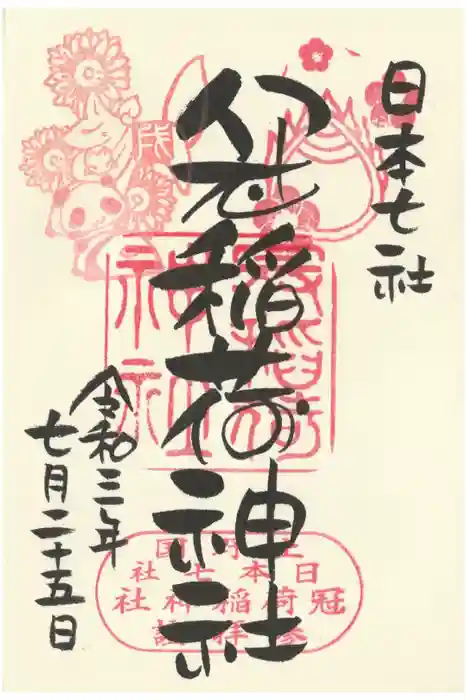 日本七社
冠稲荷神社
令和三年
七月二十五日
上野国
日本七社
冠稲荷神社